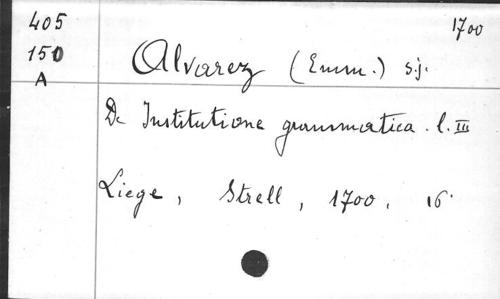 405
1700
150
A
Alvarez (Emm.) s.j.
De Institutione grammatica. l. III
Liege, Strell, 1700, 16°